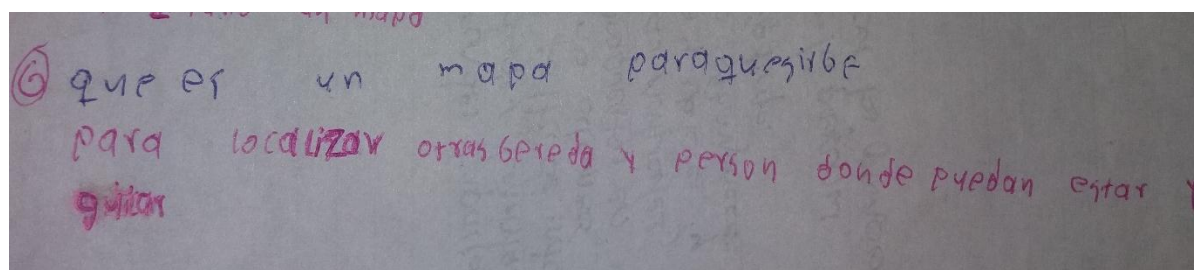 mapa
6 que es un mapa paraquesirbe
para localizar otras bereda y person donde puedan estar y
guiar